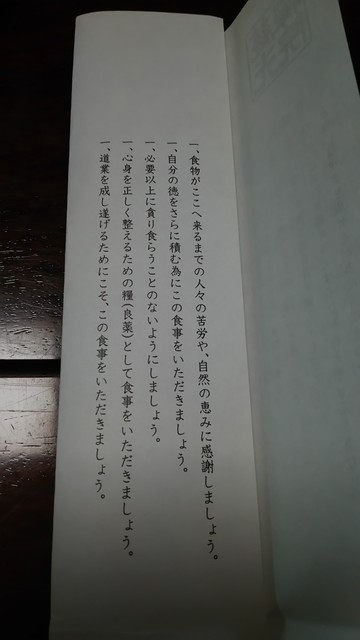 一、食物がここへ来るまでの人々の苦労や、自然の恵みに感謝しましょう。
一、自分の徳をさらに積む為にこの食事をいただきましょう。
一、必要以上に貪り食らうことのないようにしましょう。
一、心身を正しく整えるための糧(良薬)として食事をいただきましょう。
一、道業を成し遂げるためにこそ、この食事をいただきましょう。